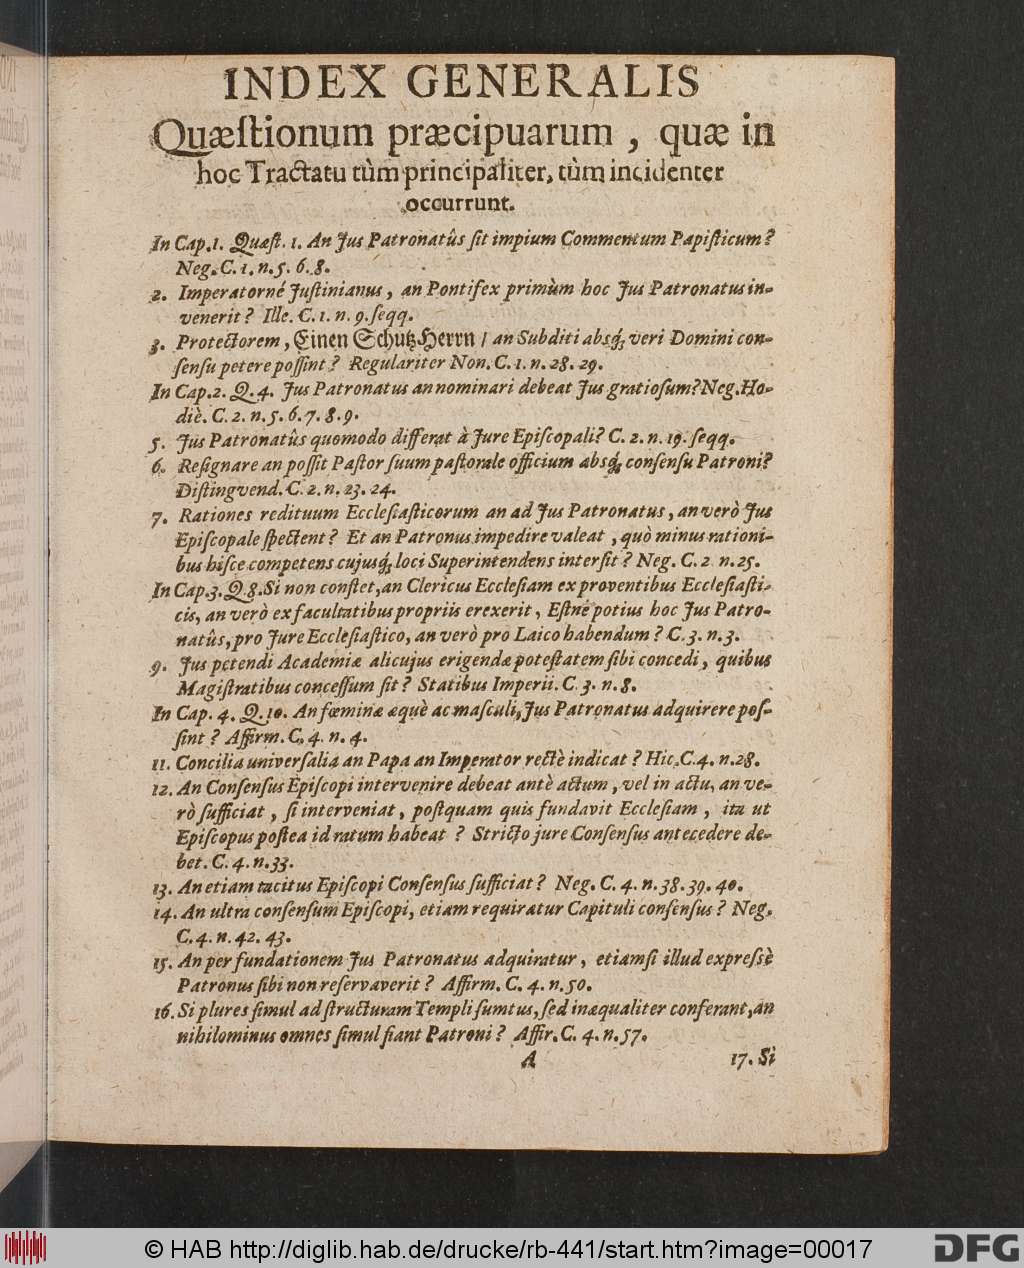 INDEX GENERALIS
Quæſtionum præcipuarum, quæ in
hoc Tractatu tùm principaliter, tùm incidenter
occurrunt.
In Cap. 1. Quæſt. 1. An Jus Patronatûs ſit impium Commentum Papiſticum?
Neg. C. 1. n. 5. 6. 8.
2. Imperatorné Juſtinianus, an Pontifex primùm hoc Jus Patronatus in-
venerit? Ille. C. 1. n. 9. ſeqq.
3. Protectorem, Einen SchutzHerrn / an Subditi absq; veri Domini con-
ſenſu petere poſſint? Regulariter Non. C. 1. n. 28. 29.
In Cap. 2. Q. 4. Jus Patronatus an nominari debeat Jus gratioſum? Neg. Ho-
diè. C. 2. n. 5. 6. 7. 8. 9.
5. Jus Patronatûs quomodo differat à Jure Epiſcopali? C. 2. n. 19. ſeqq.
6. Reſignare an poſſit Paſtor ſuum paſtorale officium absq; conſenſu Patroni?
Diſtingvend. C. 2. n. 23. 24.
7. Rationes redituum Eccleſiaſticorum an ad Jus Patronatus, an verò Jus
Epiſcopale ſpectent? Et an Patronus impedire valeat, quò minus rationi-
bus hiſce competens cujusq; loci Superintendens interſit? Neg. C. 2 n. 25.
In Cap. 3. Q. 8. Si non conſtet, an Clericus Eccleſiam ex proventibus Eccleſiaſti-
cis, an verò ex facultatibus propriis erexerit, Eſtné potius hoc Jus Patro-
natûs, pro Jure Eccleſiaſtico, an verò pro Laico habendum? C. 3. n. 3.
9. Jus petendi Academiæ alicujus erigendæ poteſtatem ſibi concedi, quibus
Magiſtratibus conceſſum ſit? Statibus Imperii. C. 3. n. 8.
In Cap. 4. Q. 10. An fœminæ æquè ac maſculi, Jus Patronatus adquirere poſ-
ſint? Affirm. C. 4. n. 4.
11. Concilia univerſalia an Papa an Imperator rectè indicat? Hic. C. 4. n. 28.
12. An Conſenſus Epiſcopi intervenire debeat antè actum, vel in actu, an ve-
rò ſufficiat, ſi interveniat, poſtquam quis fundavit Eccleſiam, ita ut
Epiſcopus poſtea id ratum habeat? Stricto jure Conſenſus antecedere de-
bet. C. 4. n. 33.
13. An etiam tacitus Epiſcopi Conſenſus ſufficiat? Neg. C. 4. n. 38. 39. 40.
14. An ultra conſenſum Epiſcopi, etiam requiratur Capituli conſenſus? Neg.
C. 4. n. 42. 43.
15. An per fundationem Jus Patronatus adquiratur, etiamſi illud expreſsè
Patronus ſibi non reſervaverit? Affirm. C. 4. n. 50.
16. Si plures ſimul ad ſtructuram Templi ſumtus, ſed inæqualiter conferant, an
nihilominus omnes ſimul fiant Patroni? Affir. C. 4. n. 57.
A 17. Si
© HAB http://diglib.hab.de/drucke/rb-441/start.htm?image=00017
DFG